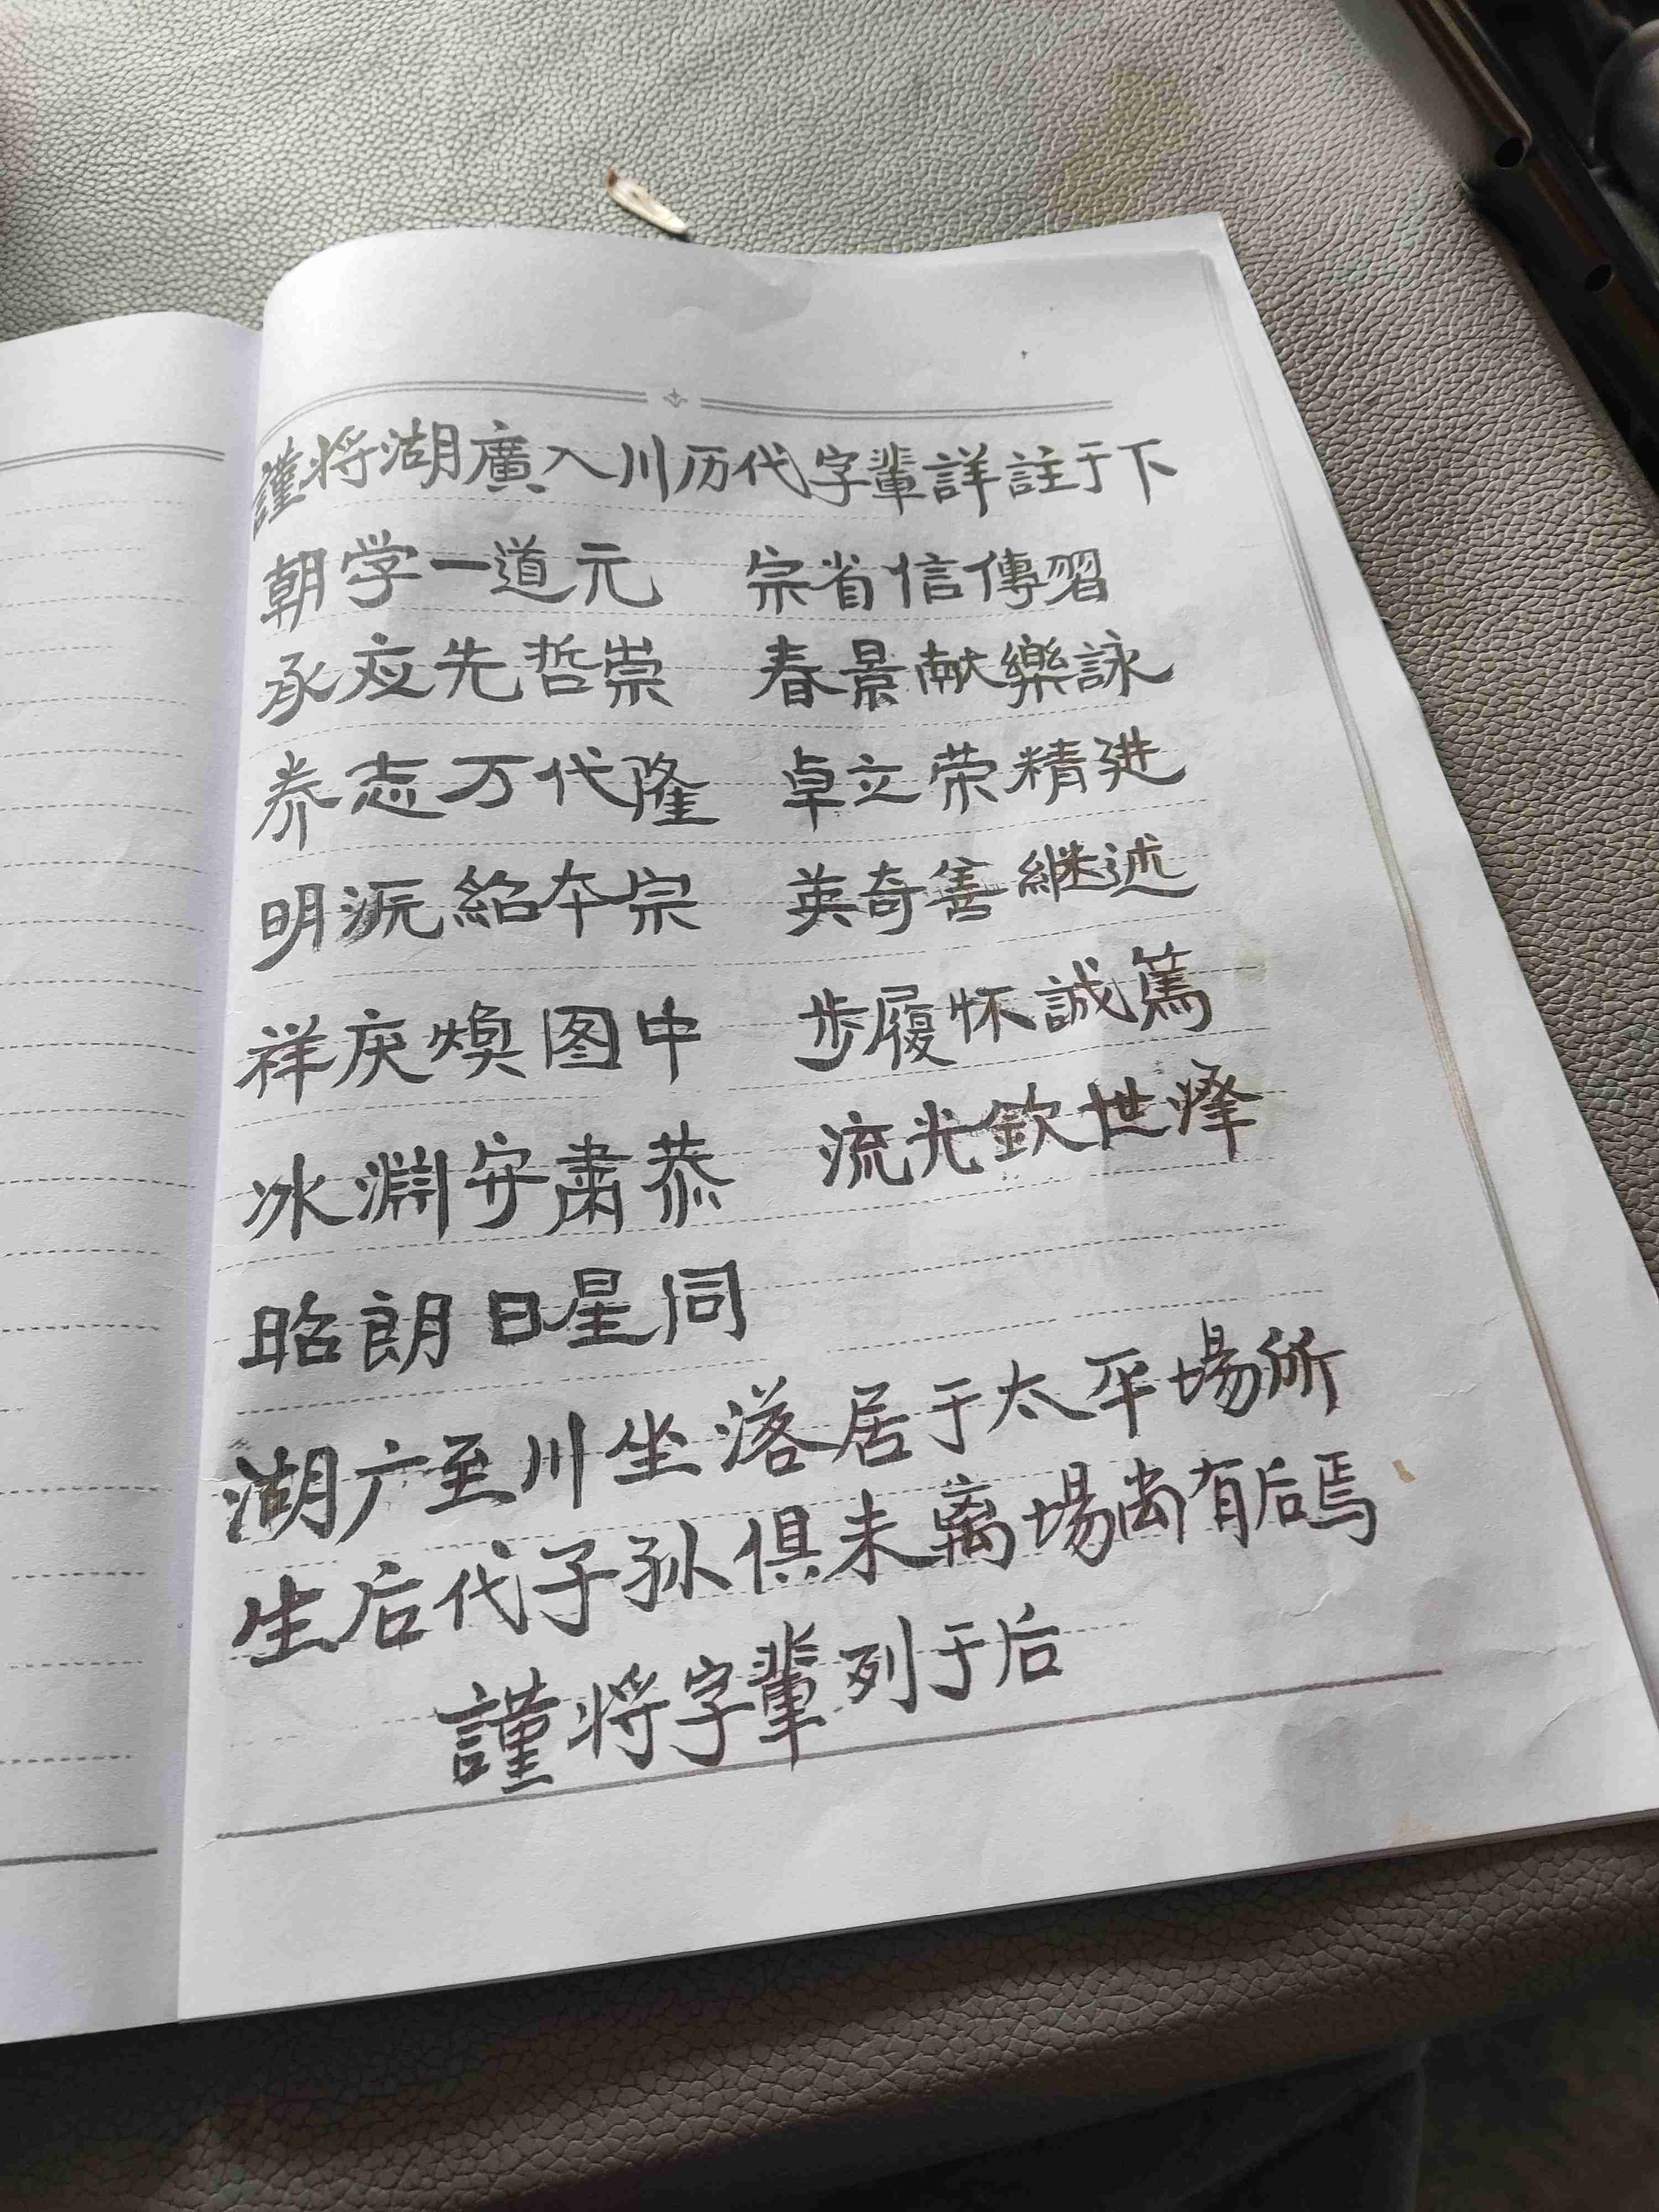 謹将湖廣入川历代字輩詳註于下
朝学一道元 宗省信傳習
承应先哲崇 春景献樂詠
养志万代隆 卓立荣精进
明派紹本宗 英奇善継述
祥庆焕图中 步履怀誠篤
冰淵守肃恭 流光欽世
昭朗日星同
湖广至川坐落居于太平場所
生后代子孙俱未离場尚有后焉
謹将字輩列于后